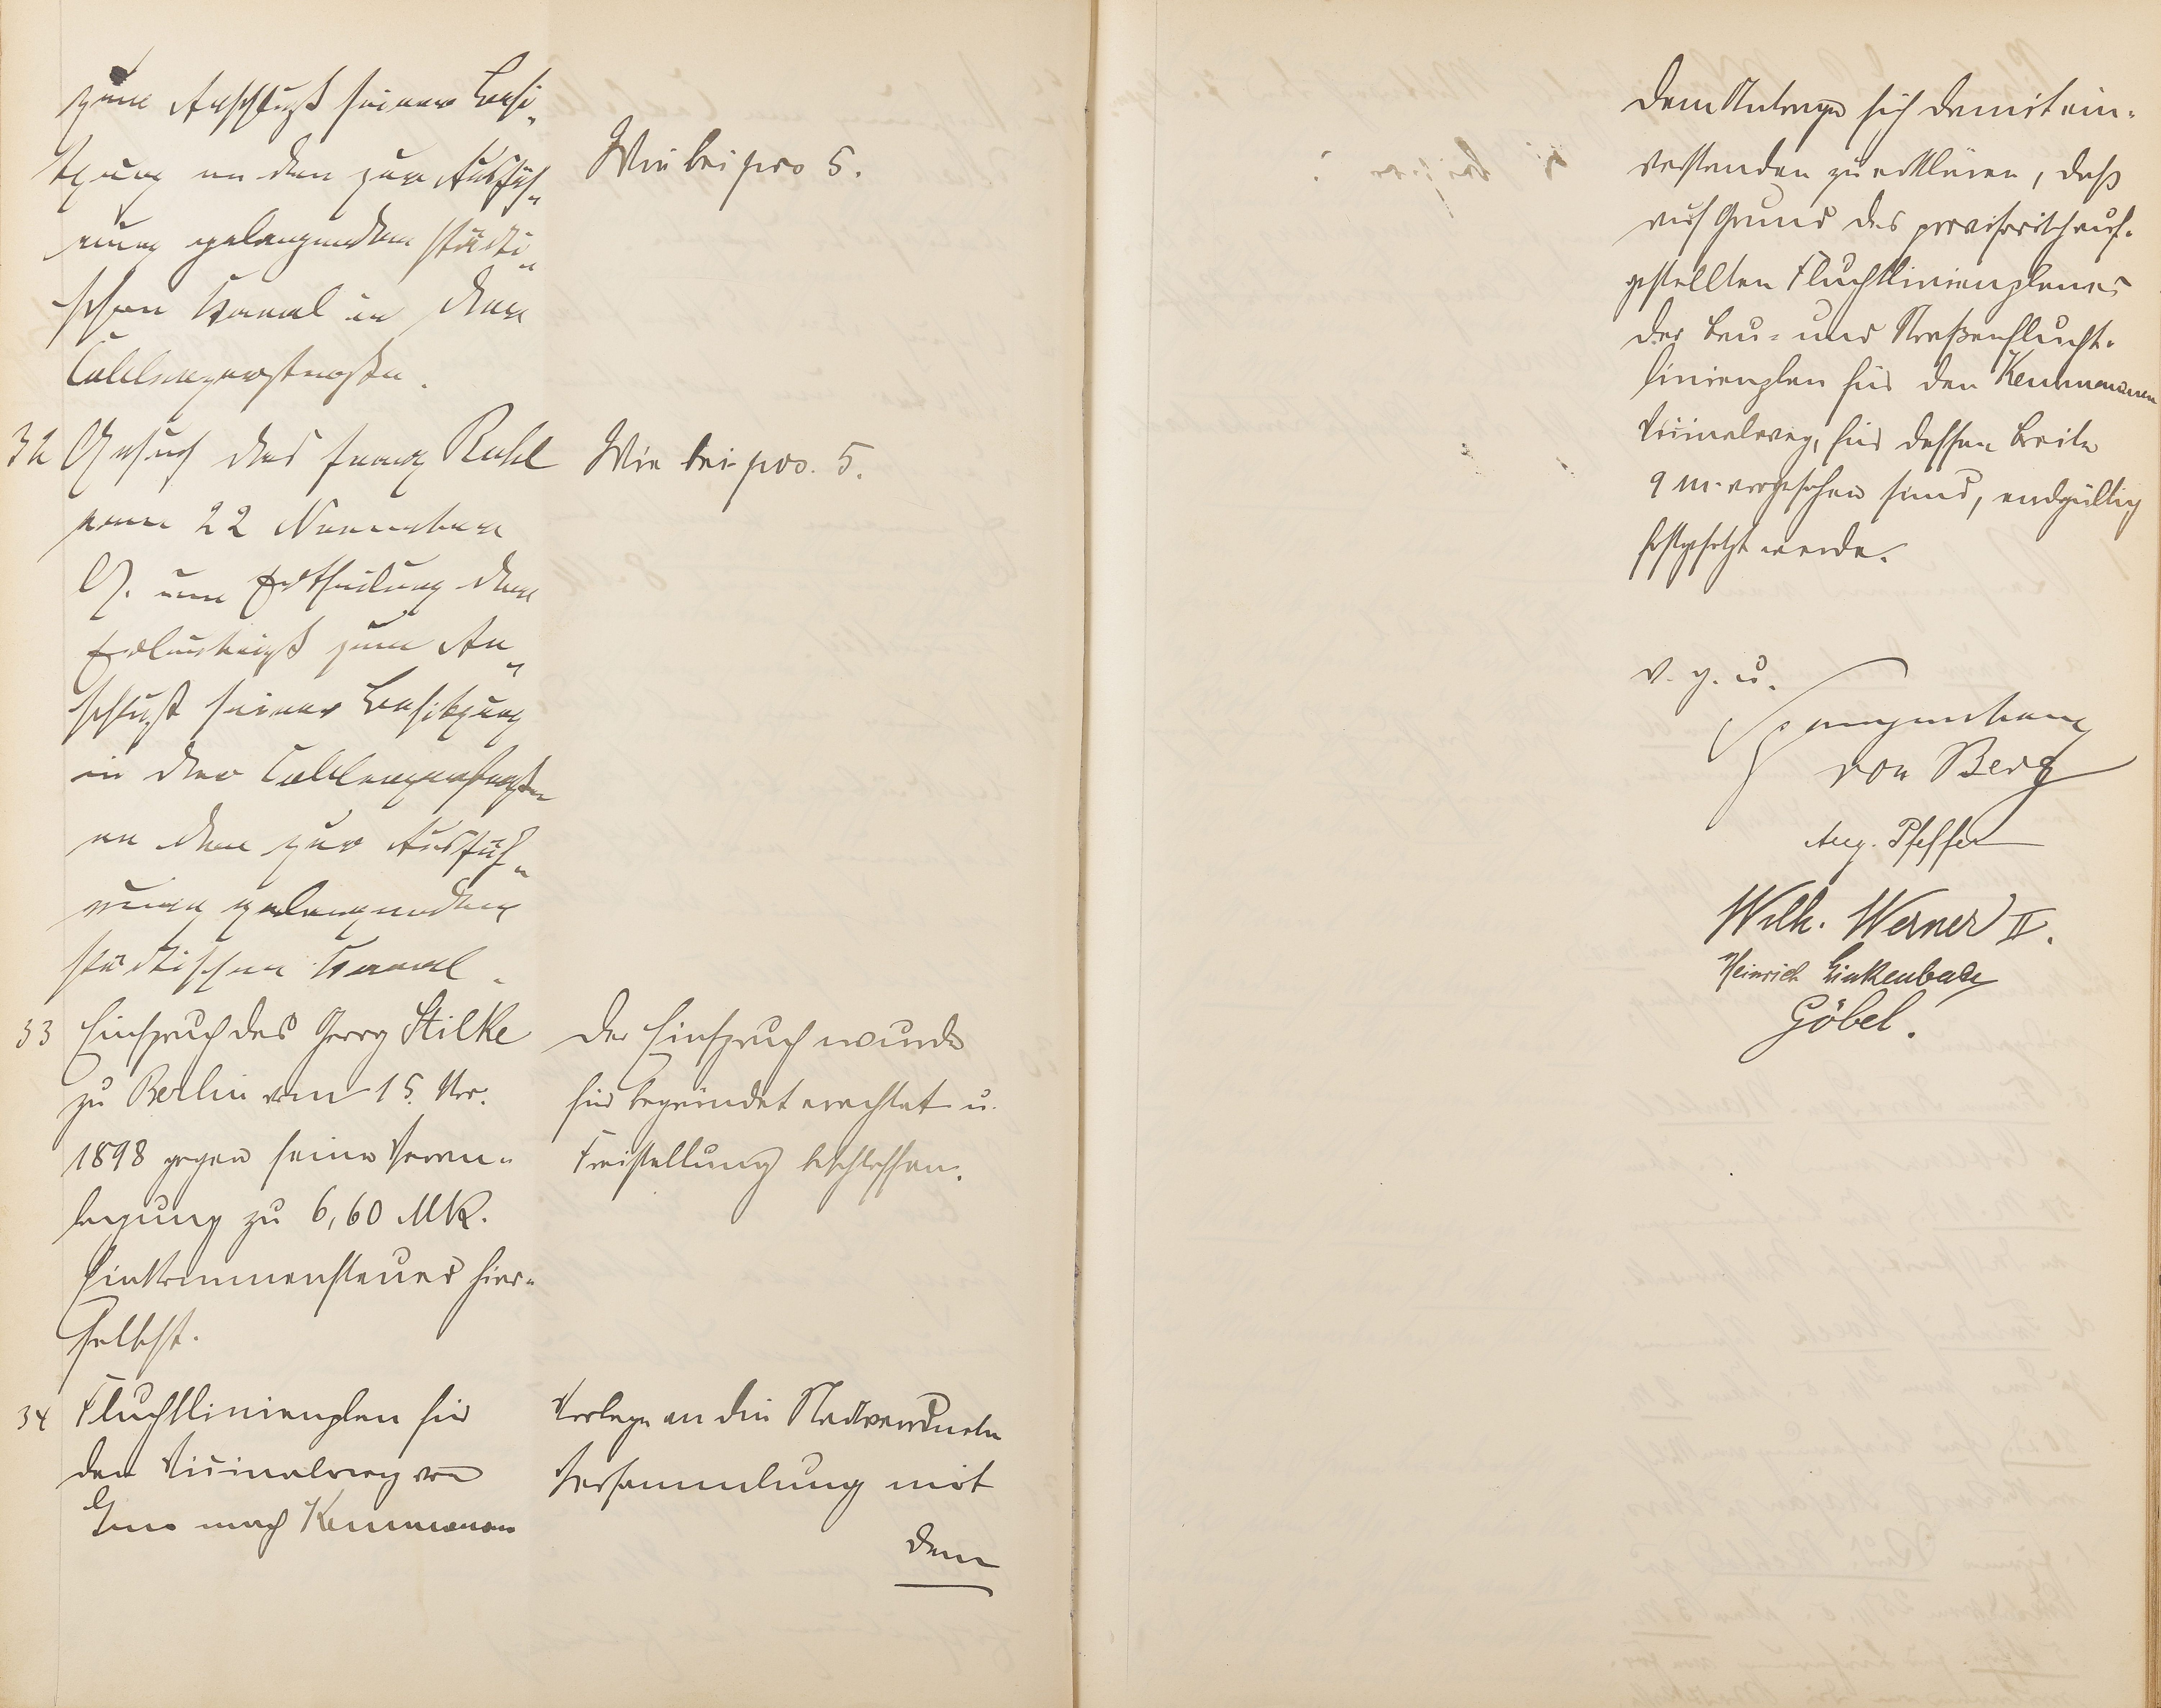 zum Anschluß seiner Besi„
tzung an den zur Ausfüh„
rung gelangenden städti„
schen Kanal in der
Coblenzerstraße.
Wie bei pos 5.
32 Gesuch des Franz Ruhl
vom 22 November
Js. um Ertheilung der
Erlaubniß zum An„
schluß seiner Besitzung
in der Coblenzerstraße
an den zur Ausfüh„
rung gelangenden
städtischen Kanal.
Wie bei pos. 5.
33 Einspruch des Georg Stilke
zu Berlin vom 15. Nov.
1898 gegen seine Veran-
lagung zu 6,60 MK.
Einkommensteuer hier-
selbst.
Der Einspruch wurde
für begründet erachtet u.
Freistellung beschlossen.
34 Fluchtlinienplan für
den Vicinalweg von
Ems nach Kemmenau
Vorlage an die Stadtverordneten
Versammlung mit
dem
Dem Antrage sich damit ein-
verstanden zu erklären, daß
auf Grund des provisorisch auf-
gestellten Fluchtlinienplanes
der Bau- und Straßenflucht-
linienplan für den Kemmenauer
Vicinalweg, für dessen Breite
9 m. vorgesehen sind, endgültig
festgesetzt werde.
v. g. u.
Spangenberg
von Berg
Aug. Pfeffer
Wilh. Werner II.
Heinrich Linkenbach
Göbel.